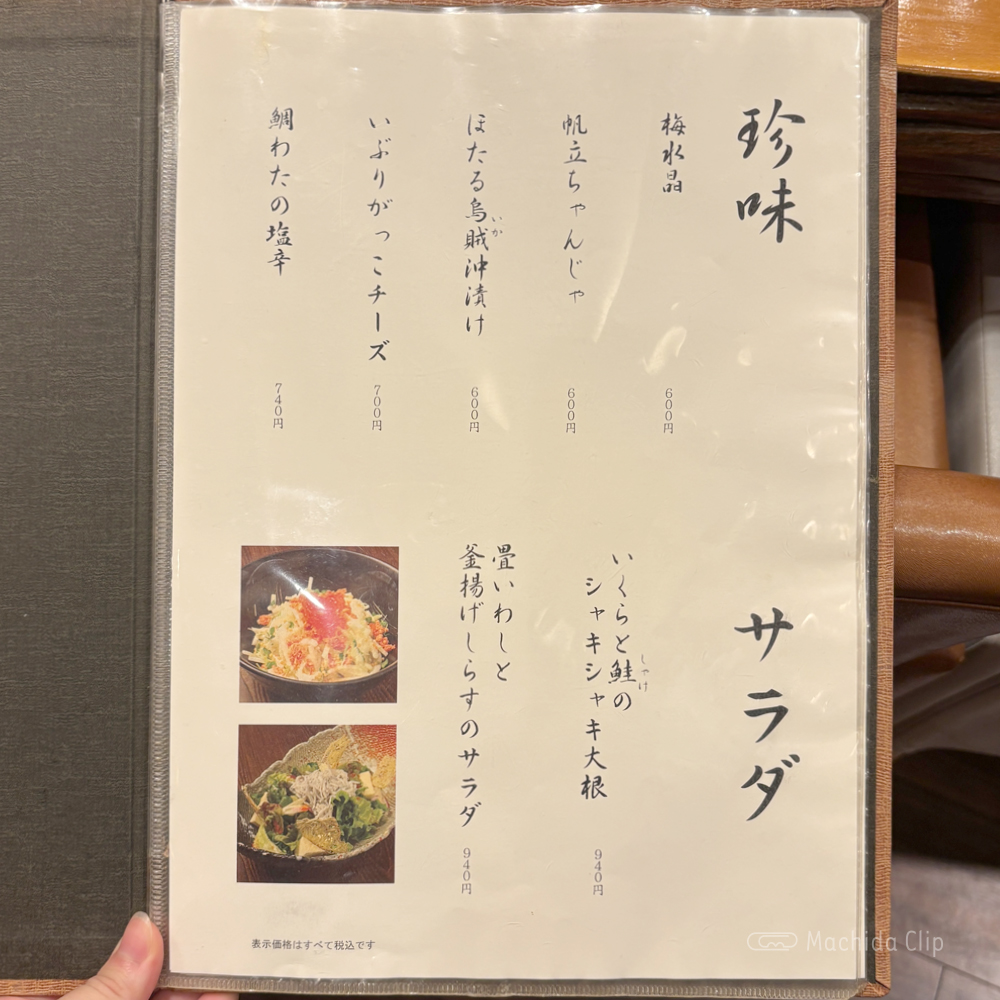 珍味
梅水晶
600円
帆立ちゃんじゃ
600円
ほたる烏賊沖漬け
いか
600円
いぶりがっこチーズ
700円
鯛わたの塩辛
740円
サラダ
いくらと鮭の
しゃけ
シャキシャキ大根
940円
畳いわしと
釜揚げしらすのサラダ
940円
表示価格はすべて税込です
Machida Clip